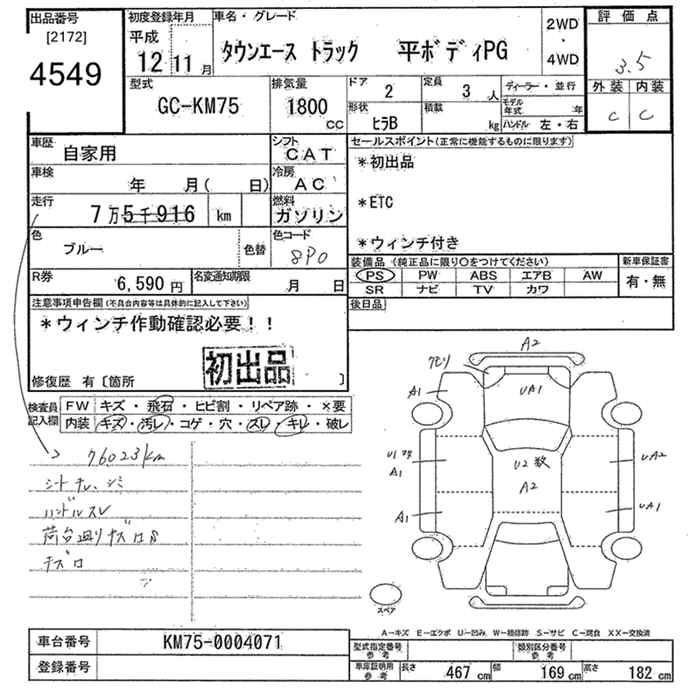 出品番号
[2172]
4549
初度登録年月
平成
12 11月
車名・グレード
タウンエース トラック 平ボディPG
2WD
・
4WD
評価点
3.5
外装 内装
C C
型式
GC-KM75
排気量
1800
cc
ドア
2
定員
3人
形状
ヒラB
積載
kg
ディーラー・並行
モデル年式 年
ハンドル 左・右
車歴
自家用
シフト
CAT
車検
年 月( 日)
冷房
AC
走行
7万5千916 km
燃料
ガソリン
色
ブルー
色替
色コード
8P0
R券
6,590円
名変通知期限
月 日
セールスポイント(正常に機能するものに限ります)
*初出品
*ETC
*ウィンチ付き
装備品(純正品に限り○をつけてください)
PS PW ABS エアB AW
SR ナビ TV カワ
新車保証書
有・無
後日品
注意事項申告欄(不具合内容等は具体的に記入して下さい)
*ウィンチ作動確認必要!!
初出品
修復歴 有〔箇所 〕
検査員記入欄
FW キズ・飛石・ヒビ割・リペア跡・×要
内装 キズ・汚レ・コゲ・穴・スレ・キレ・破レ
76023km
シートチレ、シミ
ハンドルスレ
荷台廻りキズ
A2
A1
UA1
U1
A1
U2数
A2
UA2
A1
UA1
スペア
A-キズ E-エクボ U-凹み W-補修跡 S-サビ C-腐食 XX-交換済
車台番号
KM75-0004071
登録番号
型式指定番号
参考
類別区分番号
参考
車庫証明用
参考
長さ 467cm 幅 169cm 高さ 182cm